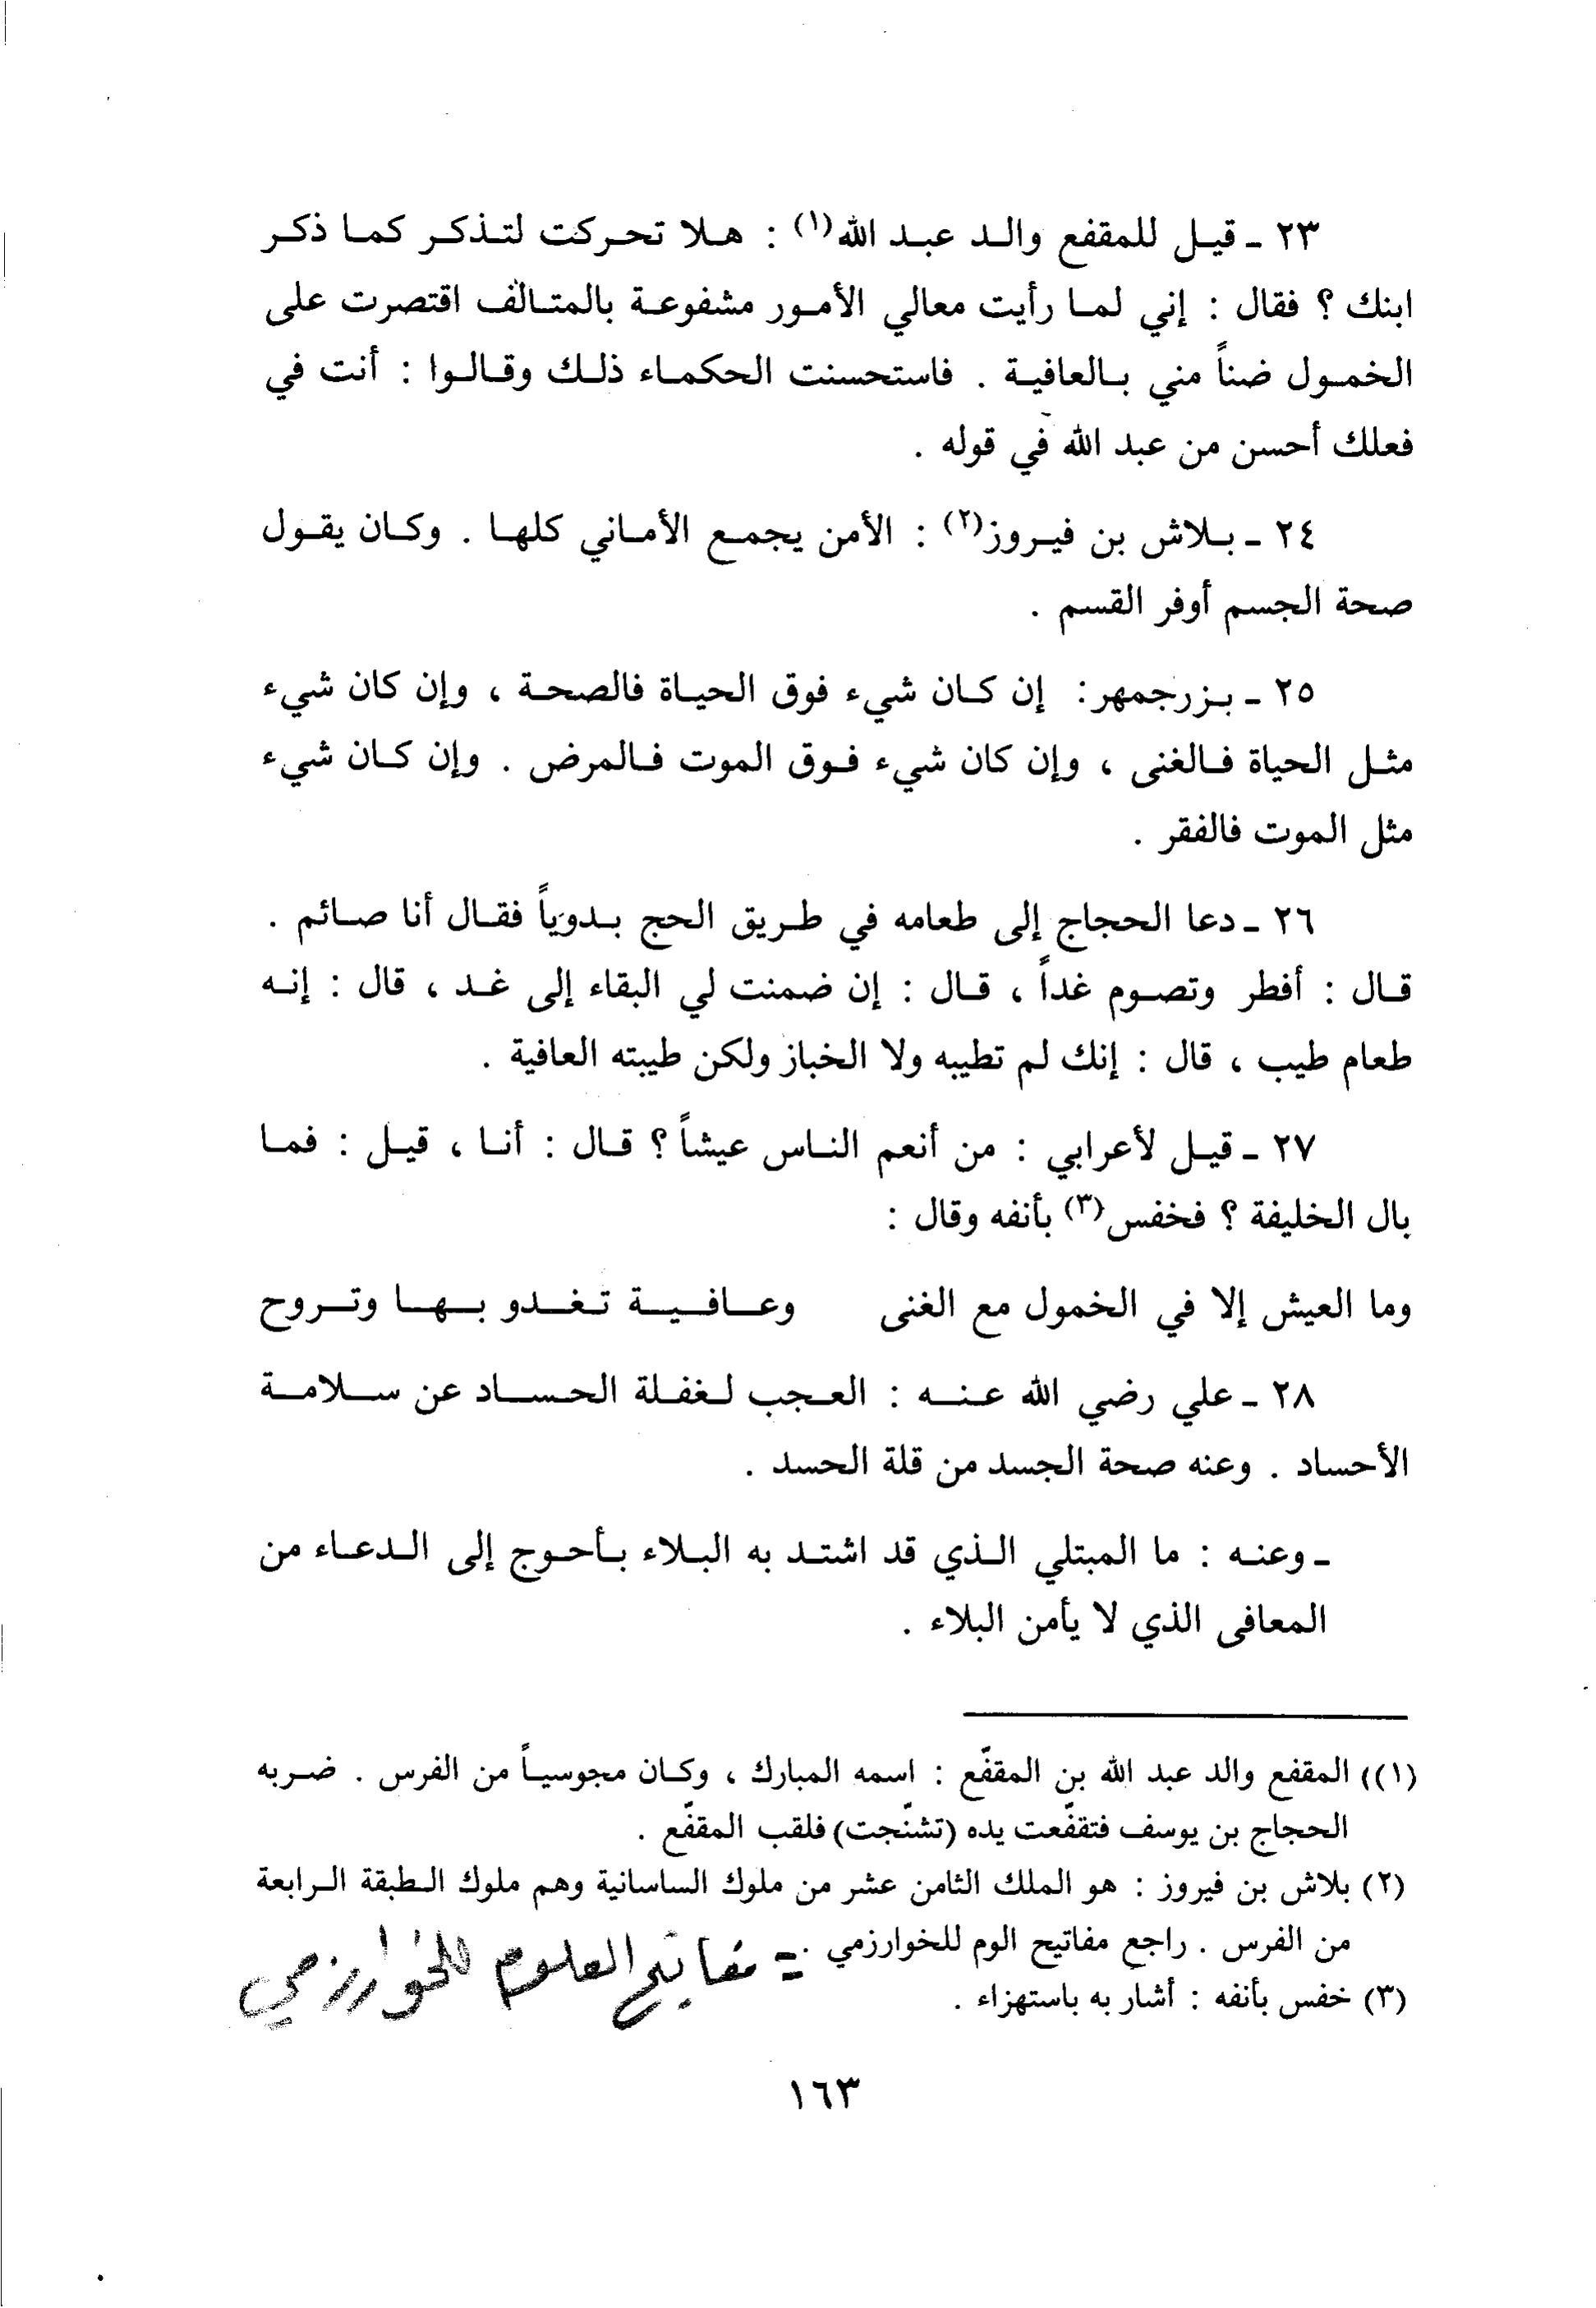 ٢٣ ـ قيل للمقفع والد عبد الله(١) : هلا تحركت لتذكر كما ذكر
ابنك ؟ فقال : إني لما رأيت معالي الأمور مشفوعة بالمتالف اقتصرت على
الخمول ضناً مني بالعافية . فاستحسنت الحكماء ذلك وقالوا : أنت في
فعلك أحسن من عبد الله في قوله .
٢٤ ـ بلاش بن فيروز(٢) : الأمن يجمع الأماني كلها . وكان يقول
صحة الجسم أوفر القسم .
٢٥ ـ بزرجمهر: إن كان شيء فوق الحياة فالصحة ، وإن كان شيء
مثل الحياة فالغنى ، وإن كان شيء فوق الموت فالمرض . وإن كان شيء
مثل الموت فالفقر .
٢٦ ـ دعا الحجاج إلى طعامه في طريق الحج بدوياً فقال أنا صائم .
قال : أفطر وتصوم غداً ، قال : إن ضمنت لي البقاء إلى غد ، قال : إنه
طعام طيب ، قال : إنك لم تطيبه ولا الخباز ولكن طيبته العافية .
٢٧ ـ قيل لأعرابي : من أنعم الناس عيشاً ؟ قال : أنا ، قيل : فما
بال الخليفة ؟ فخفس(٣) بأنفه وقال :
وما العيش إلا في الخمول مع الغنى وعافية تغدو بها وتروح
٢٨ ـ علي رضي الله عنه : العجب لغفلة الحساد عن سلامة
الأحساد . وعنه صحة الجسد من قلة الحسد .
ـ وعنه : ما المبتلي الذي قد اشتد به البلاء بأحوج إلى الدعاء من
المعافى الذي لا يأمن البلاء .
(١)) المقفع والد عبد الله بن المقفّع : اسمه المبارك ، وكان مجوسياً من الفرس . ضربه
الحجاج بن يوسف فتقفّعت يده (تشنّجت) فلقب المقفّع .
(٢) بلاش بن فيروز : هو الملك الثامن عشر من ملوك الساسانية وهم ملوك الطبقة الرابعة
من الفرس . راجع مفاتيح الوم للخوارزمي . = مفاتيح العلوم للخوارزمي
(٣) خفس بأنفه : أشار به باستهزاء .
١٦٣